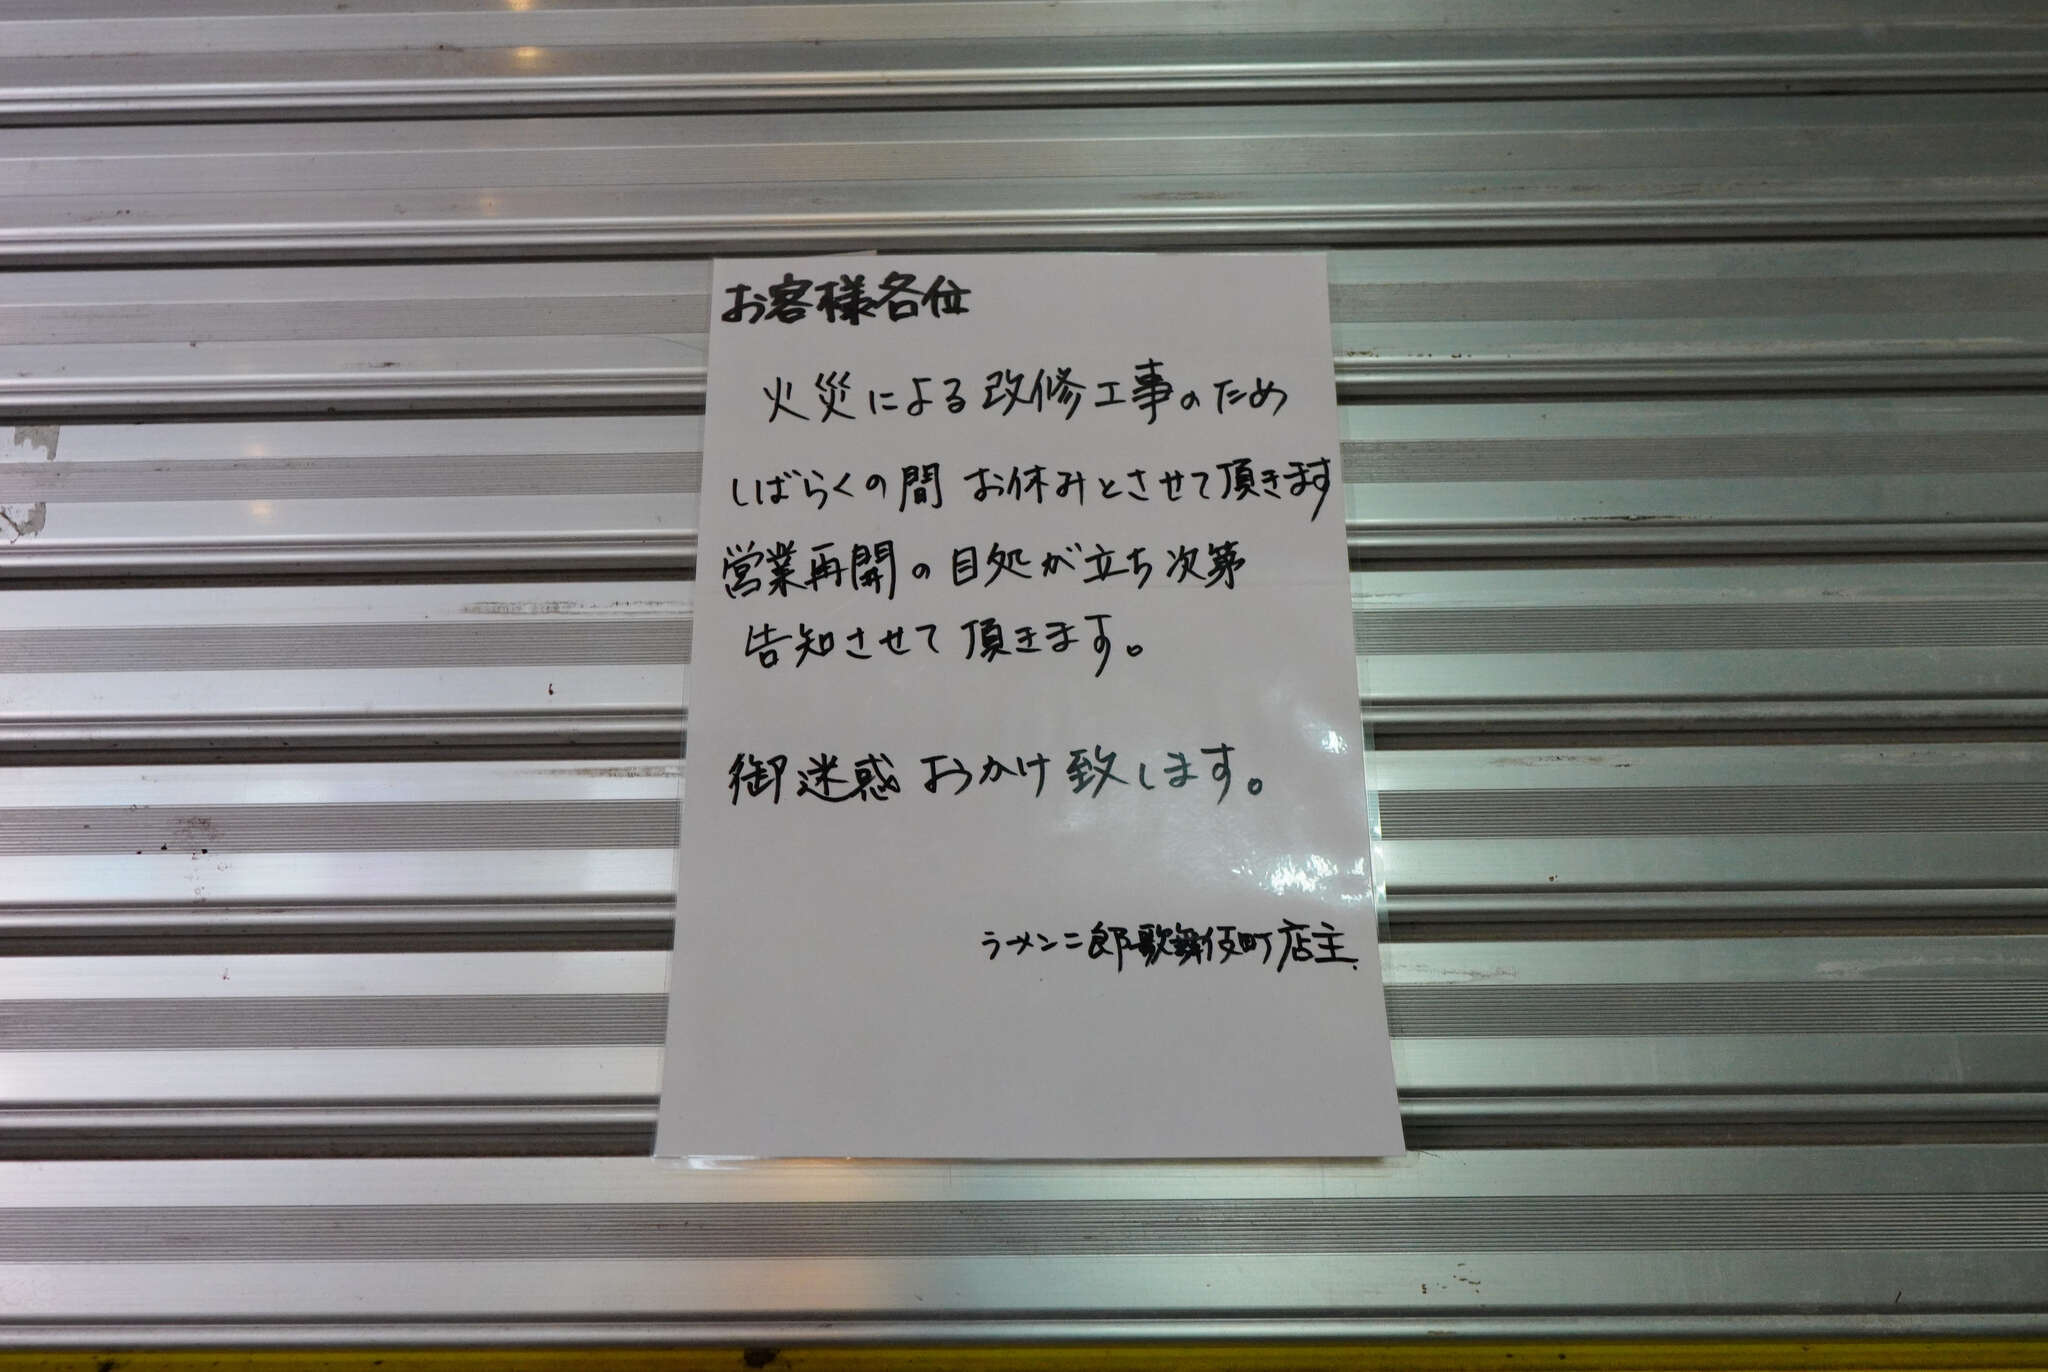 お客様各位
火災による改修工事のため
しばらくの間 お休みとさせて頂きます
営業再開の目処が立ち次第
告知させて頂きます。
御迷惑おかけ致します。
ラーメン二郎歌舞伎町店主.